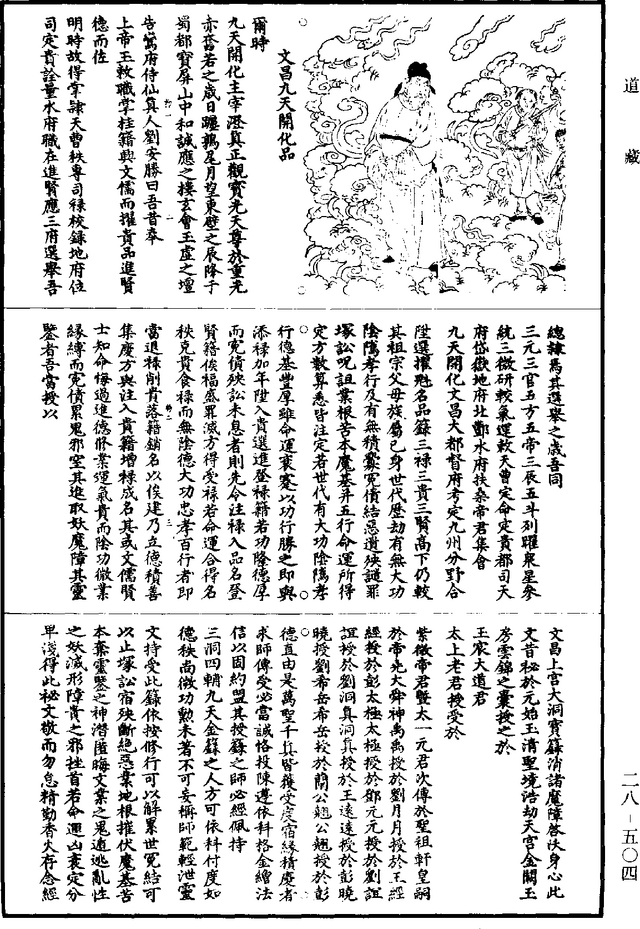 道藏
文昌九天開化品
爾時
九天開化主宰澄真正觀寶光天尊於重光
赤奮若之歲日躔鶉尾月望東壁之辰降于
蜀都寶屏山中和誠應之樓玄會玉虛之壇
告鸞府侍仙真人劉安勝曰吾昔奉
上帝玉敕職掌桂籍興文儒而擢貴品進賢
德而佐
明時故得掌隸天曹秩專司祿校錄地府位
司定貴詮量水府職在進賢應三府選舉吾
總隸焉其選舉之歲吾同
三元三官五方五帝三辰五斗列躍衆星參
統三徵研較氣運敕天曹定命定貴郡司天
府岱嶽地府北酆水府扶桑帝君集會
九天開化文昌大都督府考定九州分野合
陞選擢魁名品錄三祿三貴三賢高下仍較
其祖宗父母族屬己身世代歷劫有無大功
陰騭孝行及有無積釁寃債結惡遺殃謎罪
塚訟呪詛業根苦本魔基并五行命運所得
定方數筭悉皆注定若世代有大功陰騭孝
行德基豐厚雖命運衰蹇以功行勝之即與
添祿加年陞入貴選進登祿籍若功隆德厚
而寃債殃訟未息者則先令注祿入品名登
賢籍俟福盛罪滅方得受祿若命運合得名
秩克貴食祿而無陰德大功忠孝百行者即
當退祿削貴落籍銷名以俟建乃立德積善
集慶方與注入貴籍增祿成名其或文儒賢
士知命悔過進德修業運氣貴而陰功微業
緣縛而寃債累鬼邪窒其進取妖魔障其靈
鑒者吾當授以
文昌上宫大洞寶籙消諸魔障啓沃身心此
文昔秘於元始玉清聖境浩劫天宫金闕玉
房雲錦之囊授之於
玉宸大道君
太上老君授受於
紫微帝君暨太一元君次傳於聖祖軒皇嗣
於帝堯大舜神禹禹授於劉月月授於王經
經授於彭太極太極授於鄧元元授於劉誼
誼授於劉洞真洞真授於王遠遠授於彭曉
曉授劉希岳希岳授於闗公翹公翹授於彭
德直由是萬聖千真皆獲受度宿緣積慶者
求師傳受必當誠恪投陳遵依科格金繒法
信以固約盟其授籙之師必經佩持
三洞四輔九天金籙之人方可依科付度如
德秩尚微功勳未著不可妄稱師範輕泄靈
文持受此籙依按修行可以解累世寃結可
以止塚訟宿殃斷絕惡業地根摧伏魔基苦
本業靈鑒之神潛匿晦文業之鬼遁逃亂性
之妖滅形障貴之邪挫首若命運凶衰定分
早淺得此秘文敬而勿怠精勤香火存念經
二八-五〇四